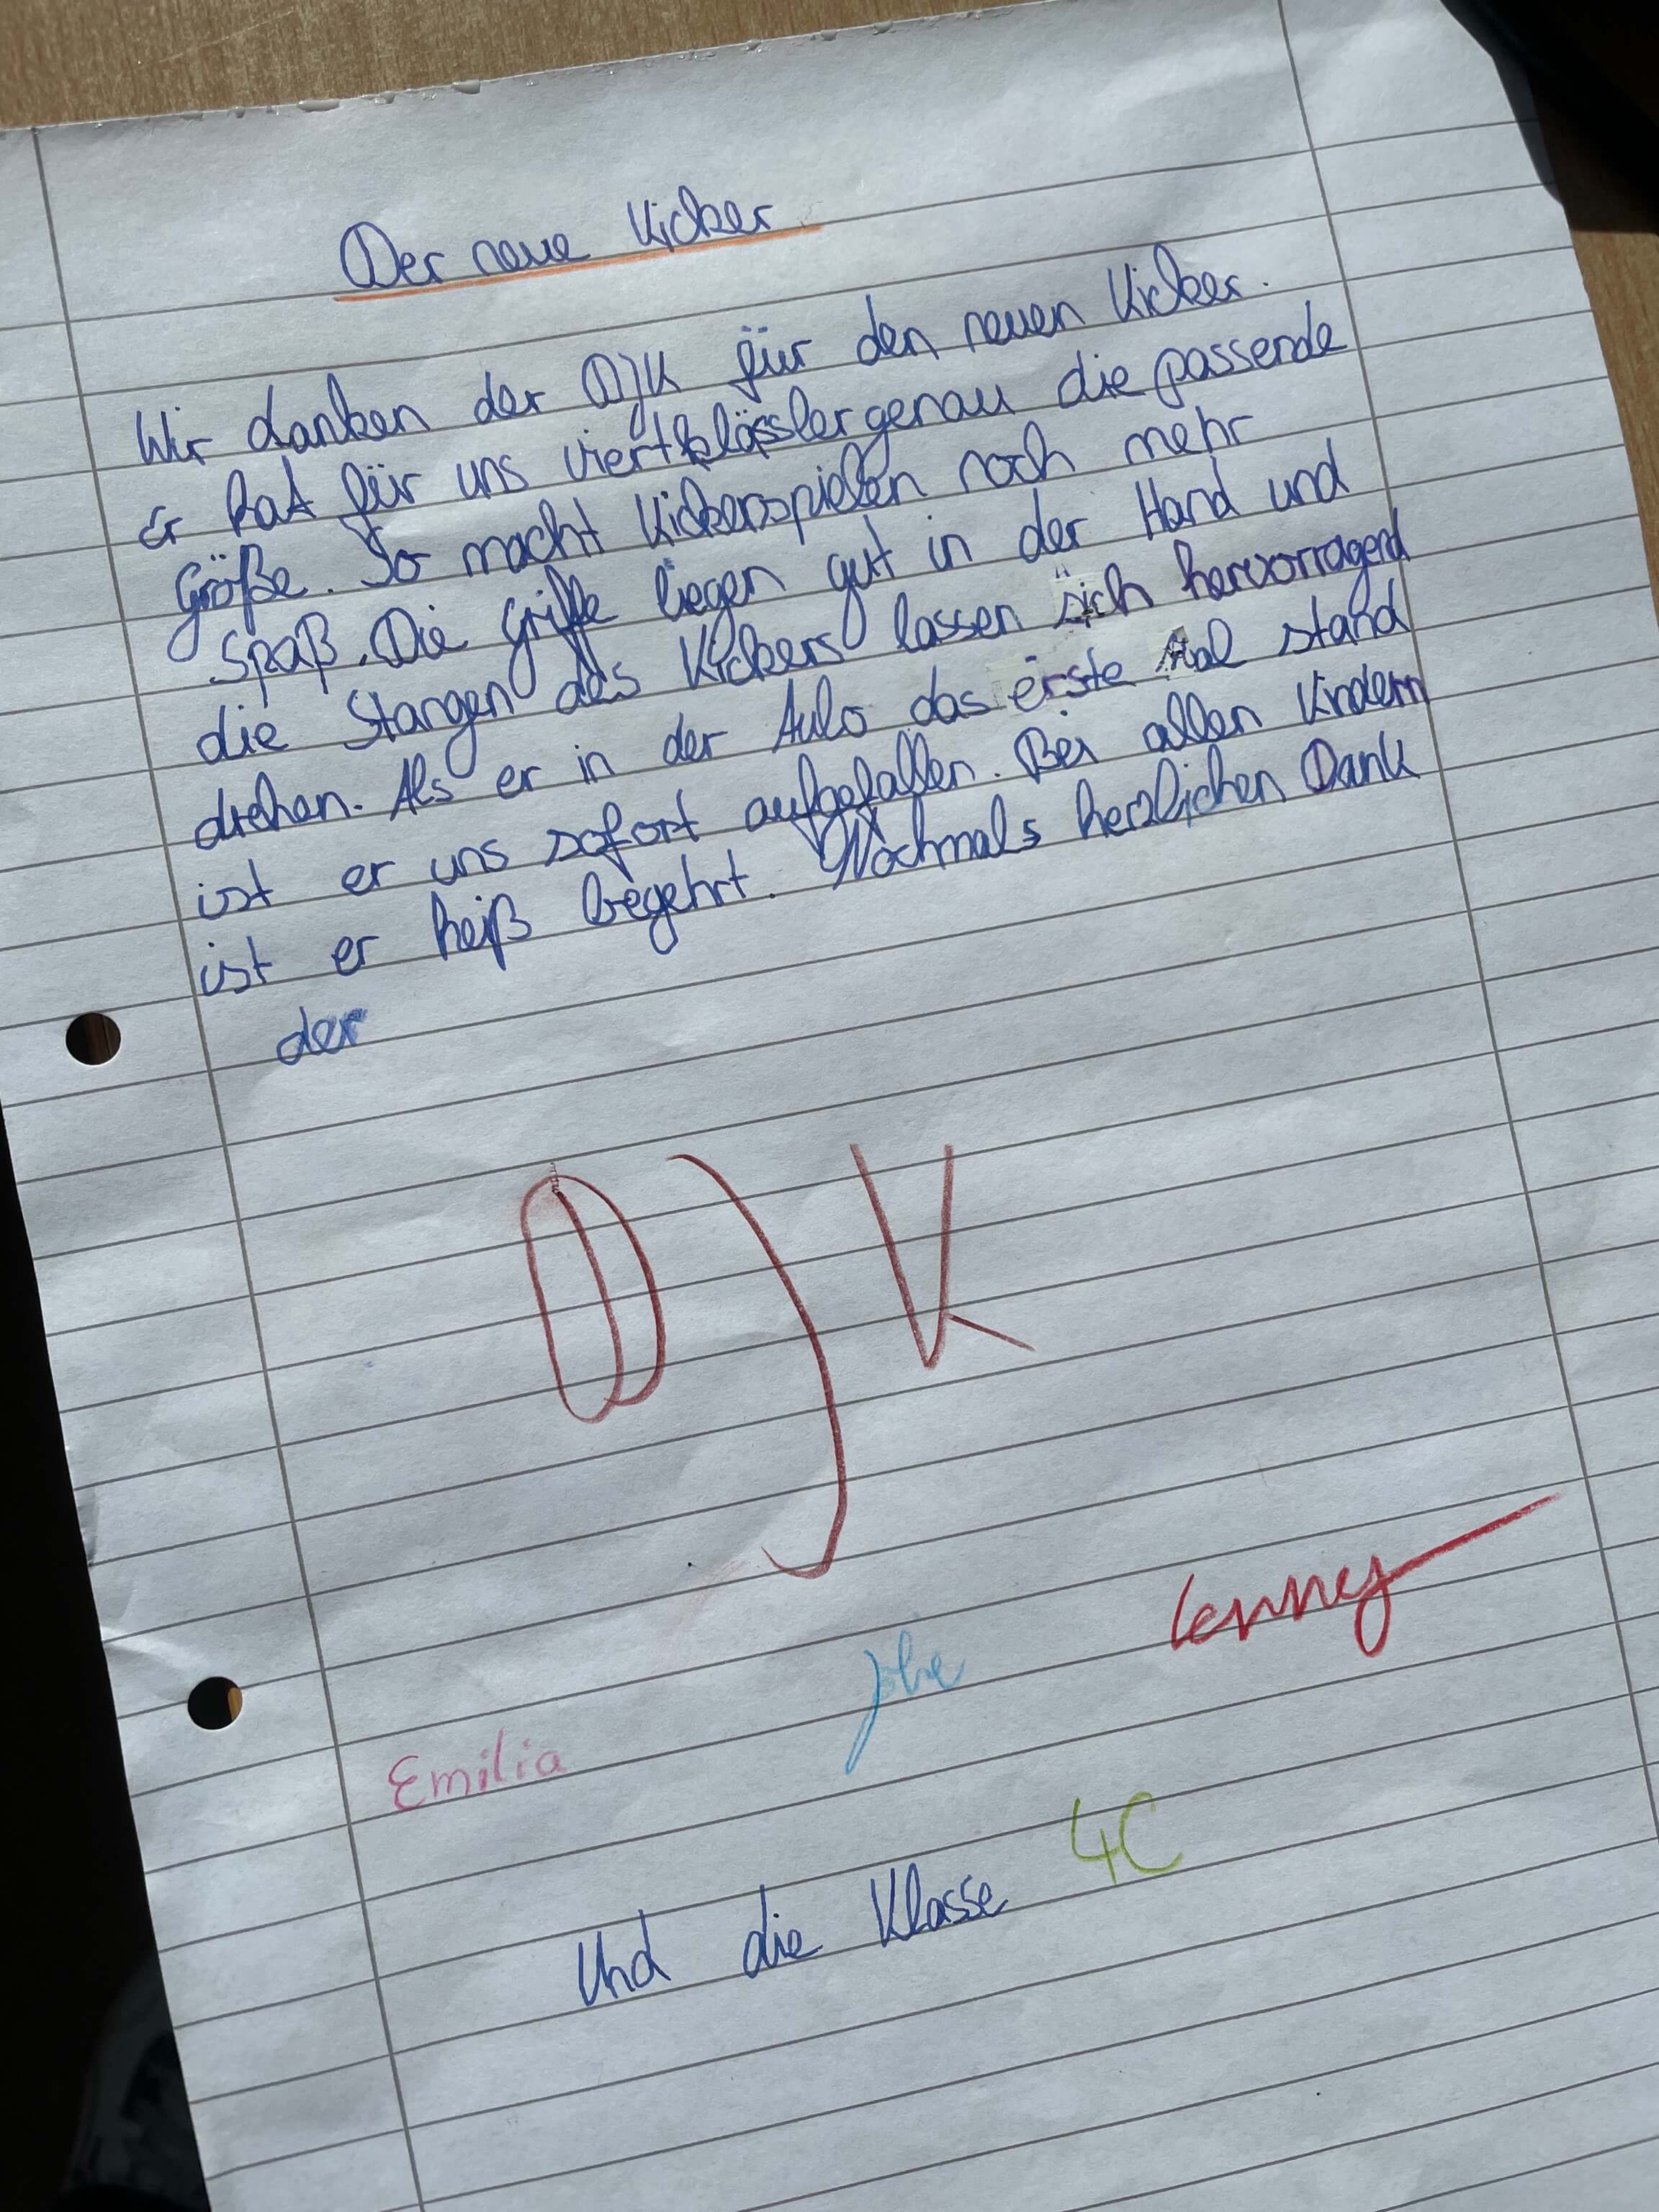 Der neue Kicker
Wir danken der DJK für den neuen Kicker.
Er hat für uns viertklässler genau die passende
Größe. So macht Kickerspielen noch mehr
Spaß. Die Griffe liegen gut in der Hand und
die Stangen des Kickers lassen sich hervorragend
drehen. Als er in der Aula das erste Mal stand
ist er uns sofort aufgefallen. Bei allen Kindern
ist er heiß begehrt. Nochmals herzlichen Dank
der
DJK
Lenny
Emilia
4C
Und die Klasse